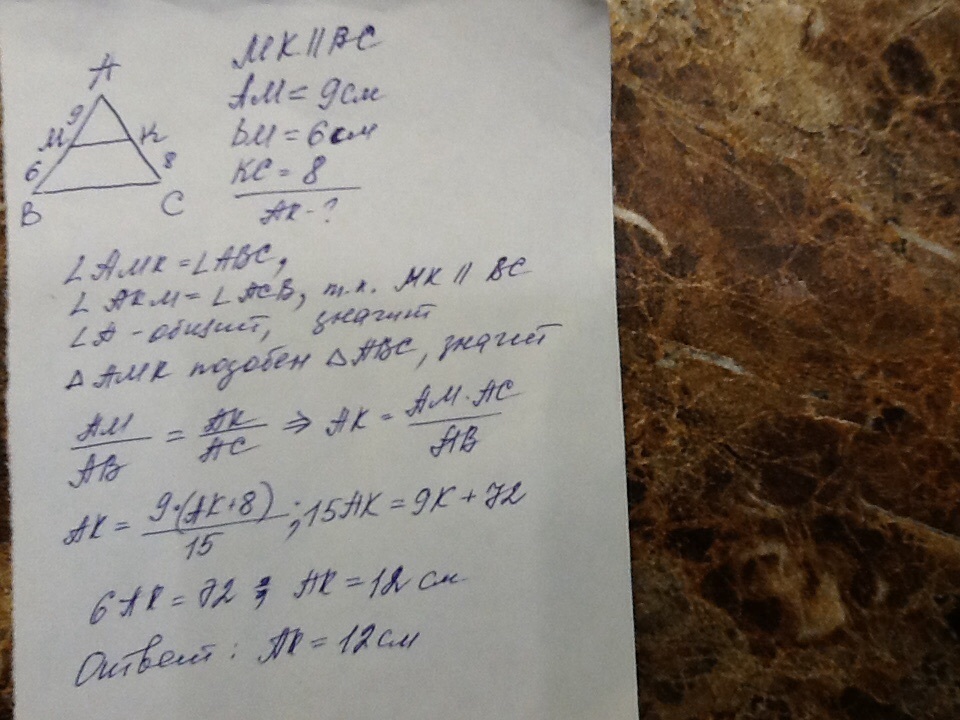 MK || BC
AM = 9 см
BM = 6 см
KC = 8
AK - ?
A
9
M
K
6
8
B
C
∠AMK = ∠ABC,
∠AKM = ∠ACB, т.к. MK || BC
∠A - общий, значит
△AMK подобен △ABC, значит
AM/AB = AK/AC ⇒ AK = AM·AC/AB
AK = 9·(AK+8)/15 ; 15AK = 9K + 72
6AK = 72 ; AK = 12 см
Ответ: AK = 12 см